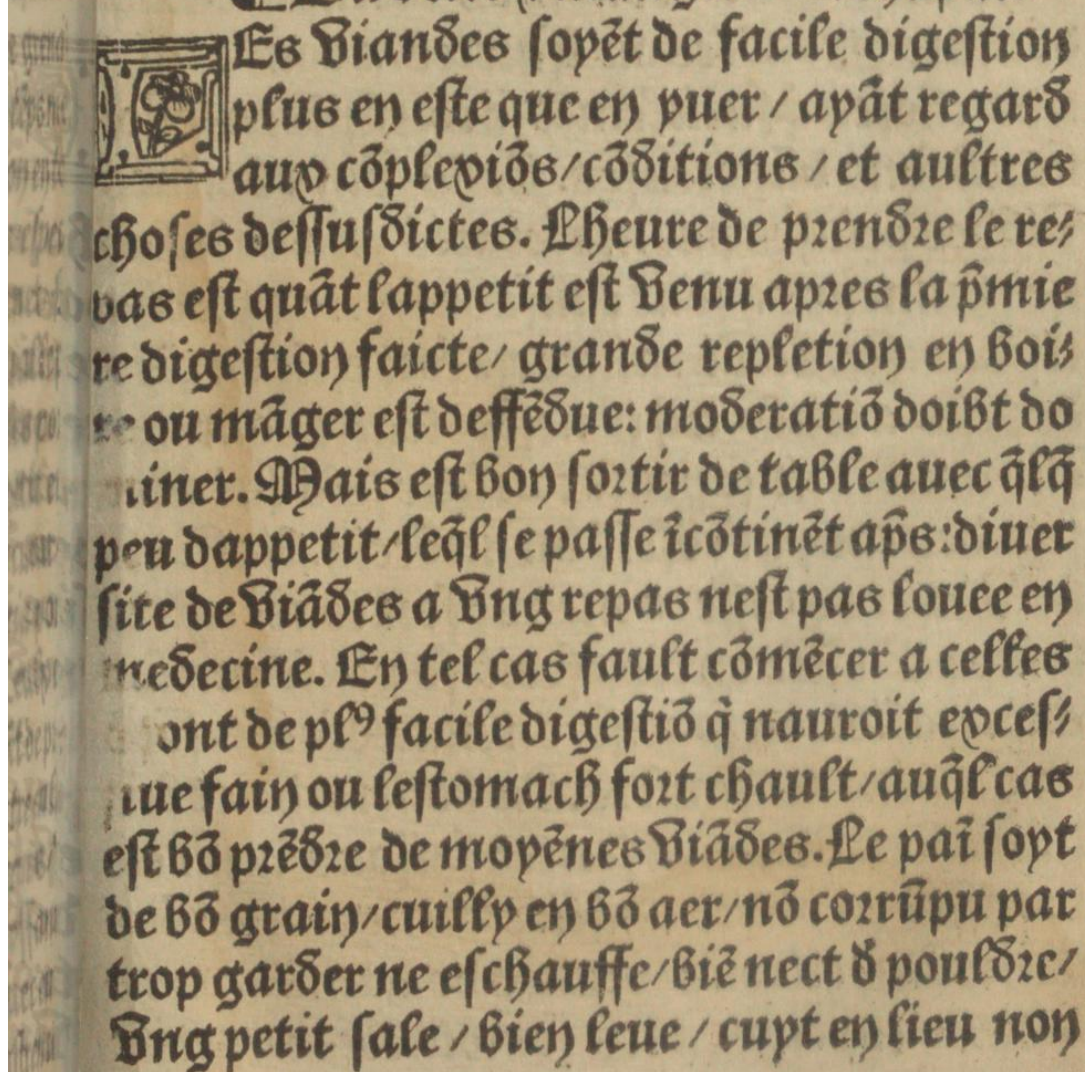 LEs viandes soyēt de facile digestion
plus en este que en yuer / ayāt regard
aux cōplexiōs/cōditions / et aultres
choses dessusdictes. Lheure de prendre le re-
pas est quāt lappetit est venu apres la p̄mie
re digestion faicte/ grande repletion en boi-
re ou māger est deffēdue: moderatiō doibt do
miner. Mais est bon sortir de table auec q̄lq̄
peu dappetit/leq̄l se passe īcōtinēt ap̄s:diuer
site de viādes a vng repas nest pas louee en
medecine. En tel cas fault cōmēcer a celles
ont de plꝰ facile digestiō q̇ nauroit exces-
iue fain ou lestomach fort chault/auq̄l cas
est bō prēdre de moyēnes viādes. Le paī soyt
de bō grain/cuilly en bō aer/nō corrūpu par
trop garder ne eschauffe/biē nect d̄ pouldre/
vng petit sale / bien leue / cuyt en lieu non